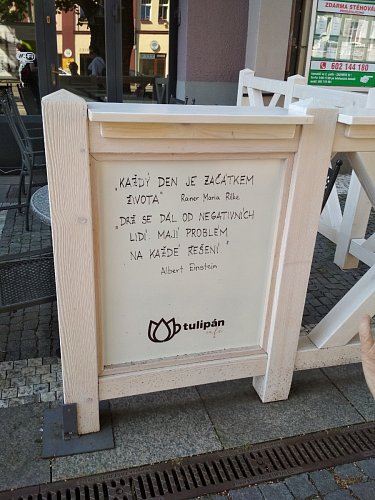 ZDARMA STĚHOVÁ
602 144 180
„KAŽDÝ DEN JE ZAČÁTKEM
ŽIVOTA“ Rainer Maria Rilke
„DRŽ SE DÁL OD NEGATIVNÍCH
LIDÍ. MAJÍ PROBLÉM
NA KAŽDÉ ŘEŠENÍ.“
Albert Einstein
tulipán
café